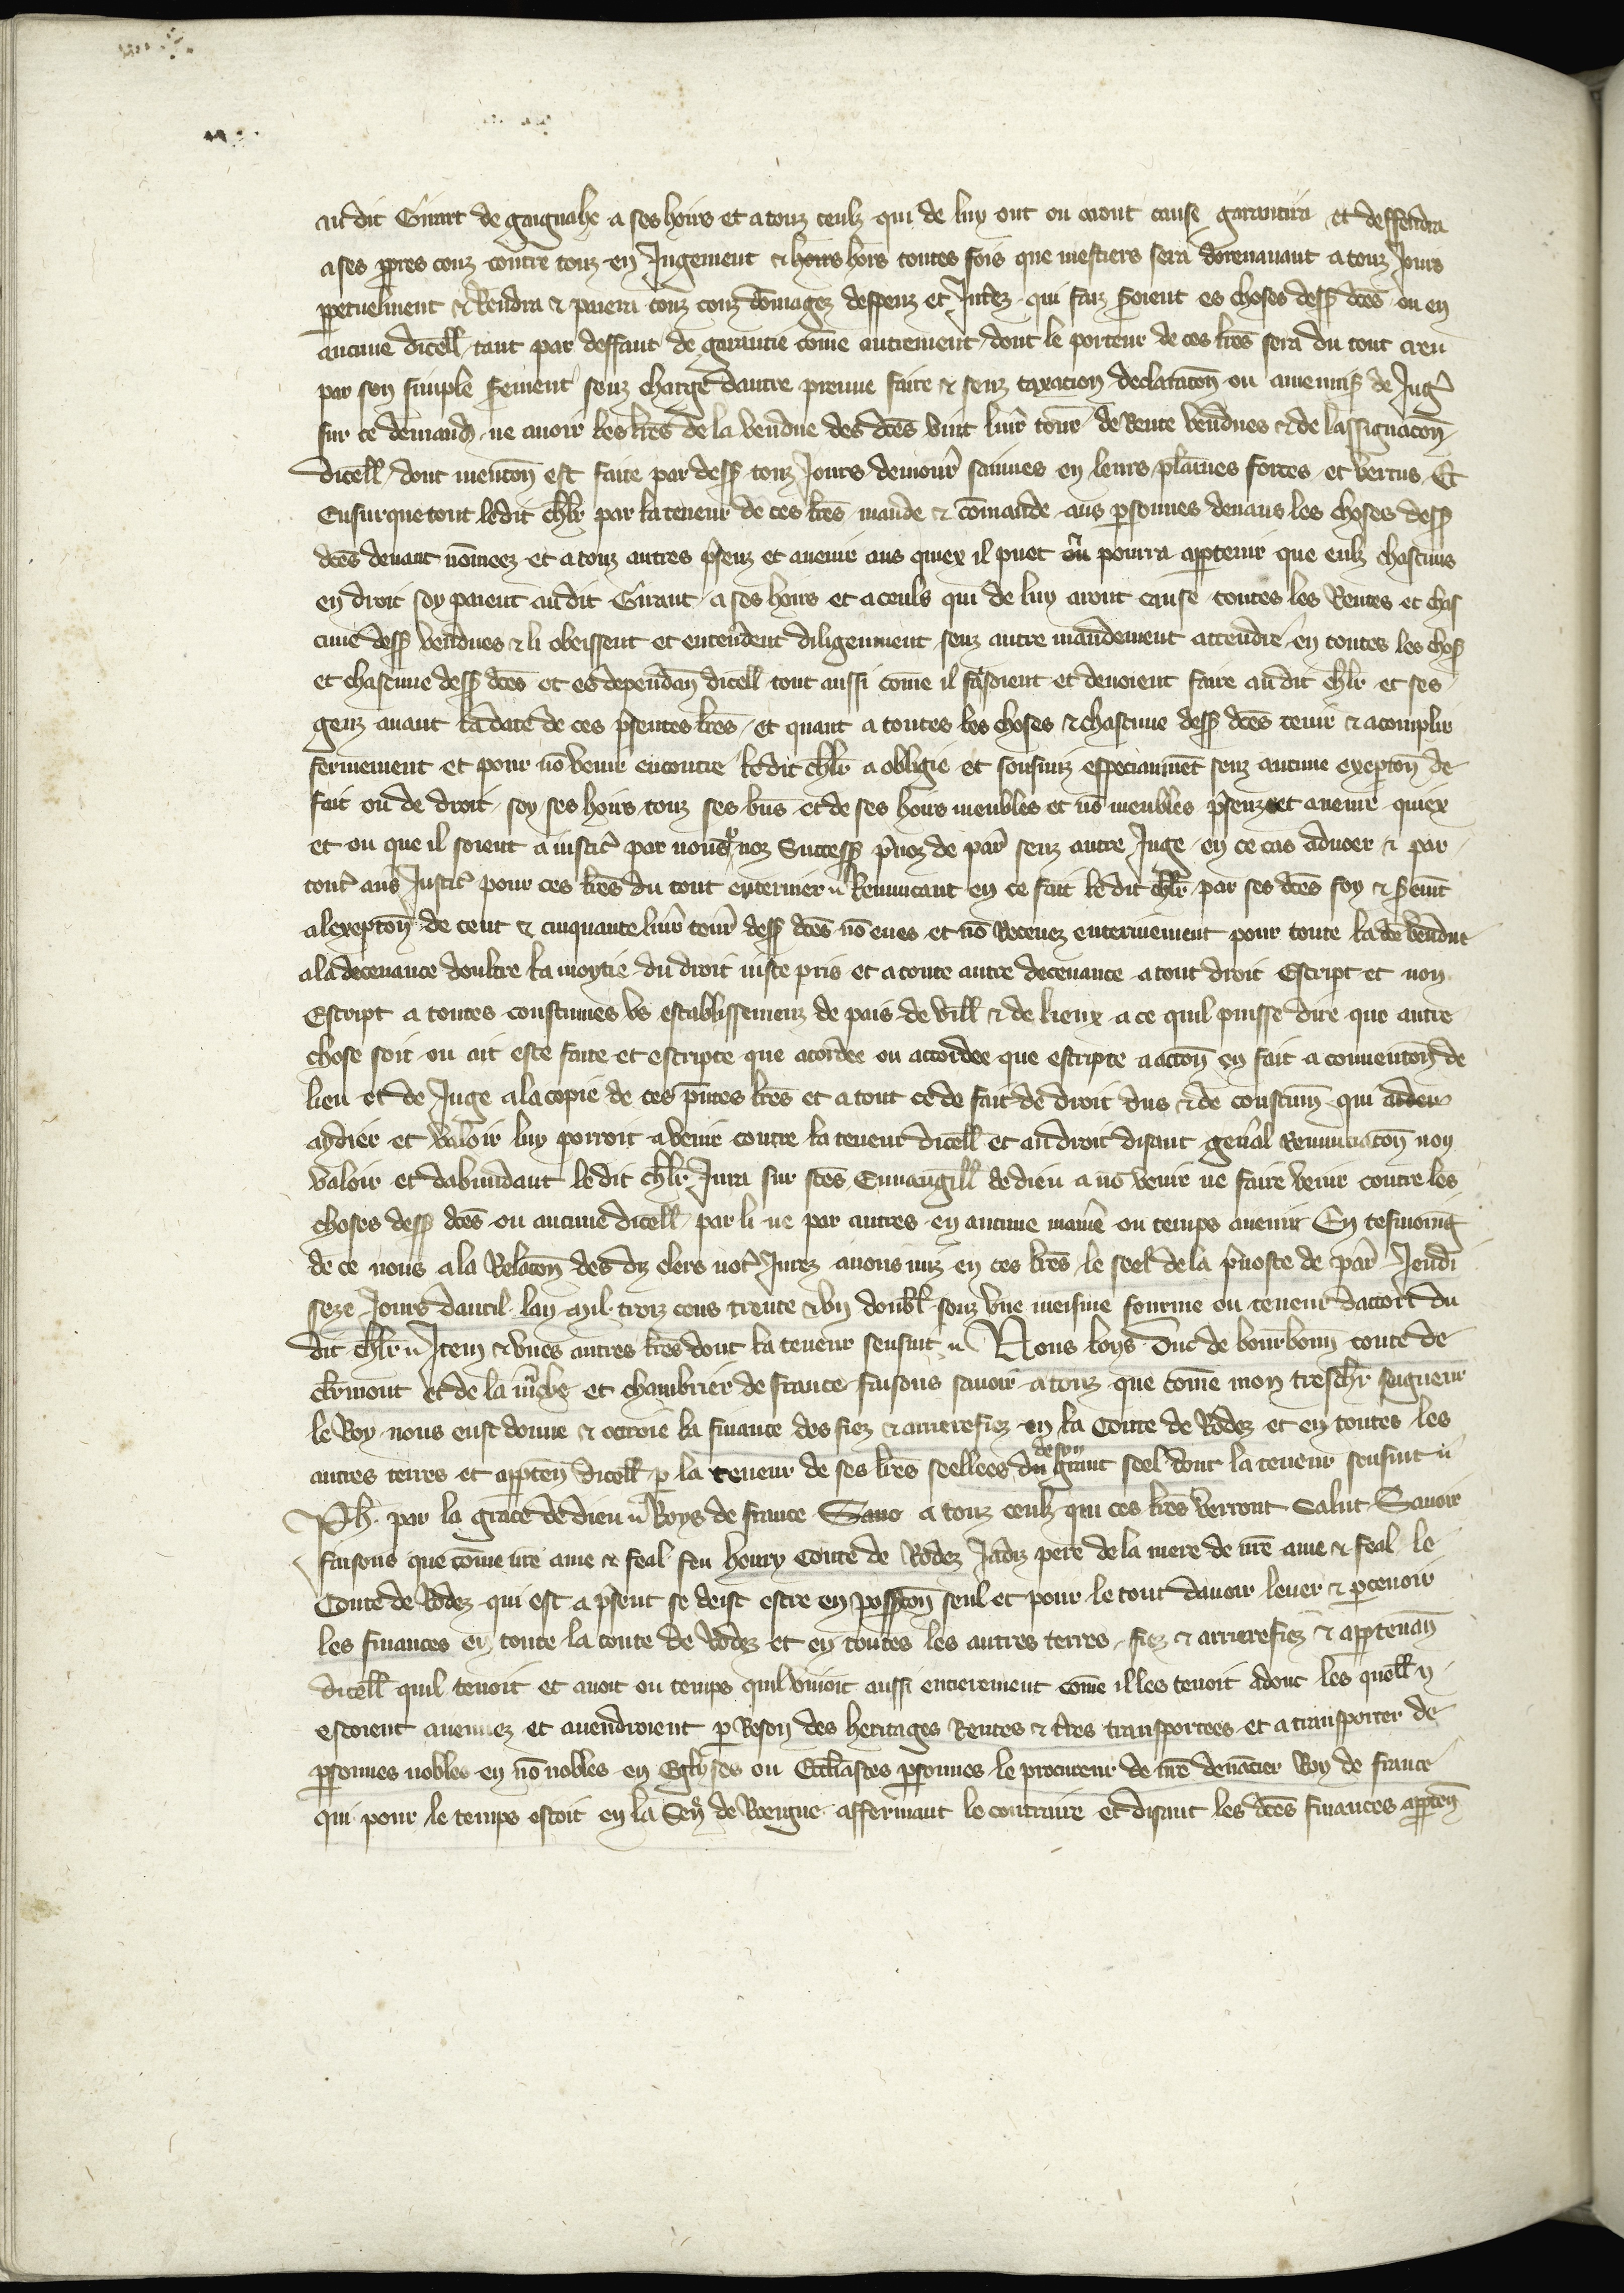 au dit Girart de gaignahe a ses hoirs et a touz ceulz qui de luy ont ou auront cause garantira et deffendra
a ses ppres couz contre touz en Jugement & hors toutes fois que mestiers sera dorenauant a touz Jours
ppetuelment & Rendra & paiera touz couz dōmagez despenz et Jnterez qui faiz seroient es choses dess dcēs ou en
aucune dicell tant par deffaut de garantie cōme autrement dont le porteur de ces lrēs sera du tout creu
par son simple serement senz charge dautre preuue faire & senz taxacion declaracōn ou amenuis de Jug
sur ce demand ne auoir les lrēs de la vendue des dcēs vint liur tour de Rente vendues & de lassignacōn
dicell dont mencōn est faite par dess touz Jours demour sainnes en leurs plainnes forces et vertus Et
Ensurquetout ledit chlr par la teneur de ces lrēs mande & cōmande aus psonnes deuans les choses dess
dcēs deuant nōmeez et a touz autres psenz et auenir aus quiex il puet ou pourra apptenir que eulz chascuns
en droit soy paient au dit Giraut a ses hoirs et a ceuls qui de luy aront cause toutes les Rentes et chas
cune dess vendues & li obeissent et entendent diligemment senz autre mandement attendre en toutes les chos
et chascune dess dcēs et es dependan dicell tout aussi cōme il fasoient et deuoient faire au dit chlr et ses
genz auant la date de ces psentes lrēs Et quant a toutes les choses & chascune dess dcēs tenir & acomplir
fermement et pour nō venir encontre ledit chlr a obligie et sousmiz especiaument senz aucune excepcōn de
fait ou de droit soy ses hoirs touz ses biēs et de ses hoirs meubles et nō meubles psenz et auenir quiex
et ou que il soient a iustic par nous noz Success puoz de par senz autre Juge en ce cas aduoer & par
tout aus Justic pour ces lrēs du tout enterinier Renuncant en ce fait ledit chlr par ses dcēs foy & seremt
a lexcepcōn de cent & cinquante liur tour dess dcēs nō eues et nō Receuez enterinement pour toute la dce vendue
a la deceuance doultre la moytie du droit iuste pris et a toute autre deceuance a tout droit Escript et non
Escript a toutes coustumes vs establissemenz de pais de vill & de lieux a ce quil puisse dire que autre
chose soit ou ait este faite et escripte que acordee ou accordee que escripte a accōn en fait a conuencōn de
lieu et de Juge a la copie de ces pntes lrēs et a tout ce de fait de droit dus & de coustum qui aider
aydier et valoir luy porroit a venir contre la teneur dicell et au droit disant genral Renunciacōn non
valoir et dabundant ledit chlr Jura sur stēs Euuangill de dieu a nō venir ne faire venir contre les
choses dess dcēs ou aucune dicell par li ne par autres en aucune manie ou temps auenir En tesmoing
de ce nous a la Relacōn des diz clers not Jurez auons miz en ces lrēs le seel de la puoste de par Jeudi
seze Jours dauril lan mil troiz cens trente & vn doubl souz vne meisme fourme ou teneur dacort du
dit chlr Jtem & vnes autres lrēs dont la teneur sensuit Nous loys Duc de bourbonn conte de
clrmont et de la mche et chambrier de france faisons sauoir a touz que cōme mon treschr seigneur
le Roy nous eust donne & ottroie la finance des fiez & arrierefiez en la Conte de Rodez et en toutes les
autres terres et apptēn dicell p la teneur de ses lrēs seellees du de son grant seel dont la teneur sensuit
Ph. par la grace de dieu Roys de france Sauo a touz ceulz qui ces lrēs verront Salut Sauoir
faisons que cōme nre ame & feal feu henry Conte de Rodez Jadiz pere de la mere de nre ame & feal le
Conte de Rodez qui est a psent se deist estre en possion seul et pour le tout dauoir leuer & pceuoir
les finances en toute la conte de Rodez et en toutes les autres terres fiez & arrierefiez & apptenan
dicell quil tenoit et auoit ou temps quil viuoit aussi entierement cōme il les tenoit adonc les quell
estoient auenuez et auendroient p Reson des heritages Rentes & tres transportees et a transporter de
psonnes nobles en nō nobles en Eglises ou Eccliastes psonnes le procureur de nre deuācier Roy de france
qui pour le temps estoit en la Sen de Roergue affermant le contraire et disant les dcēs finances apptēn